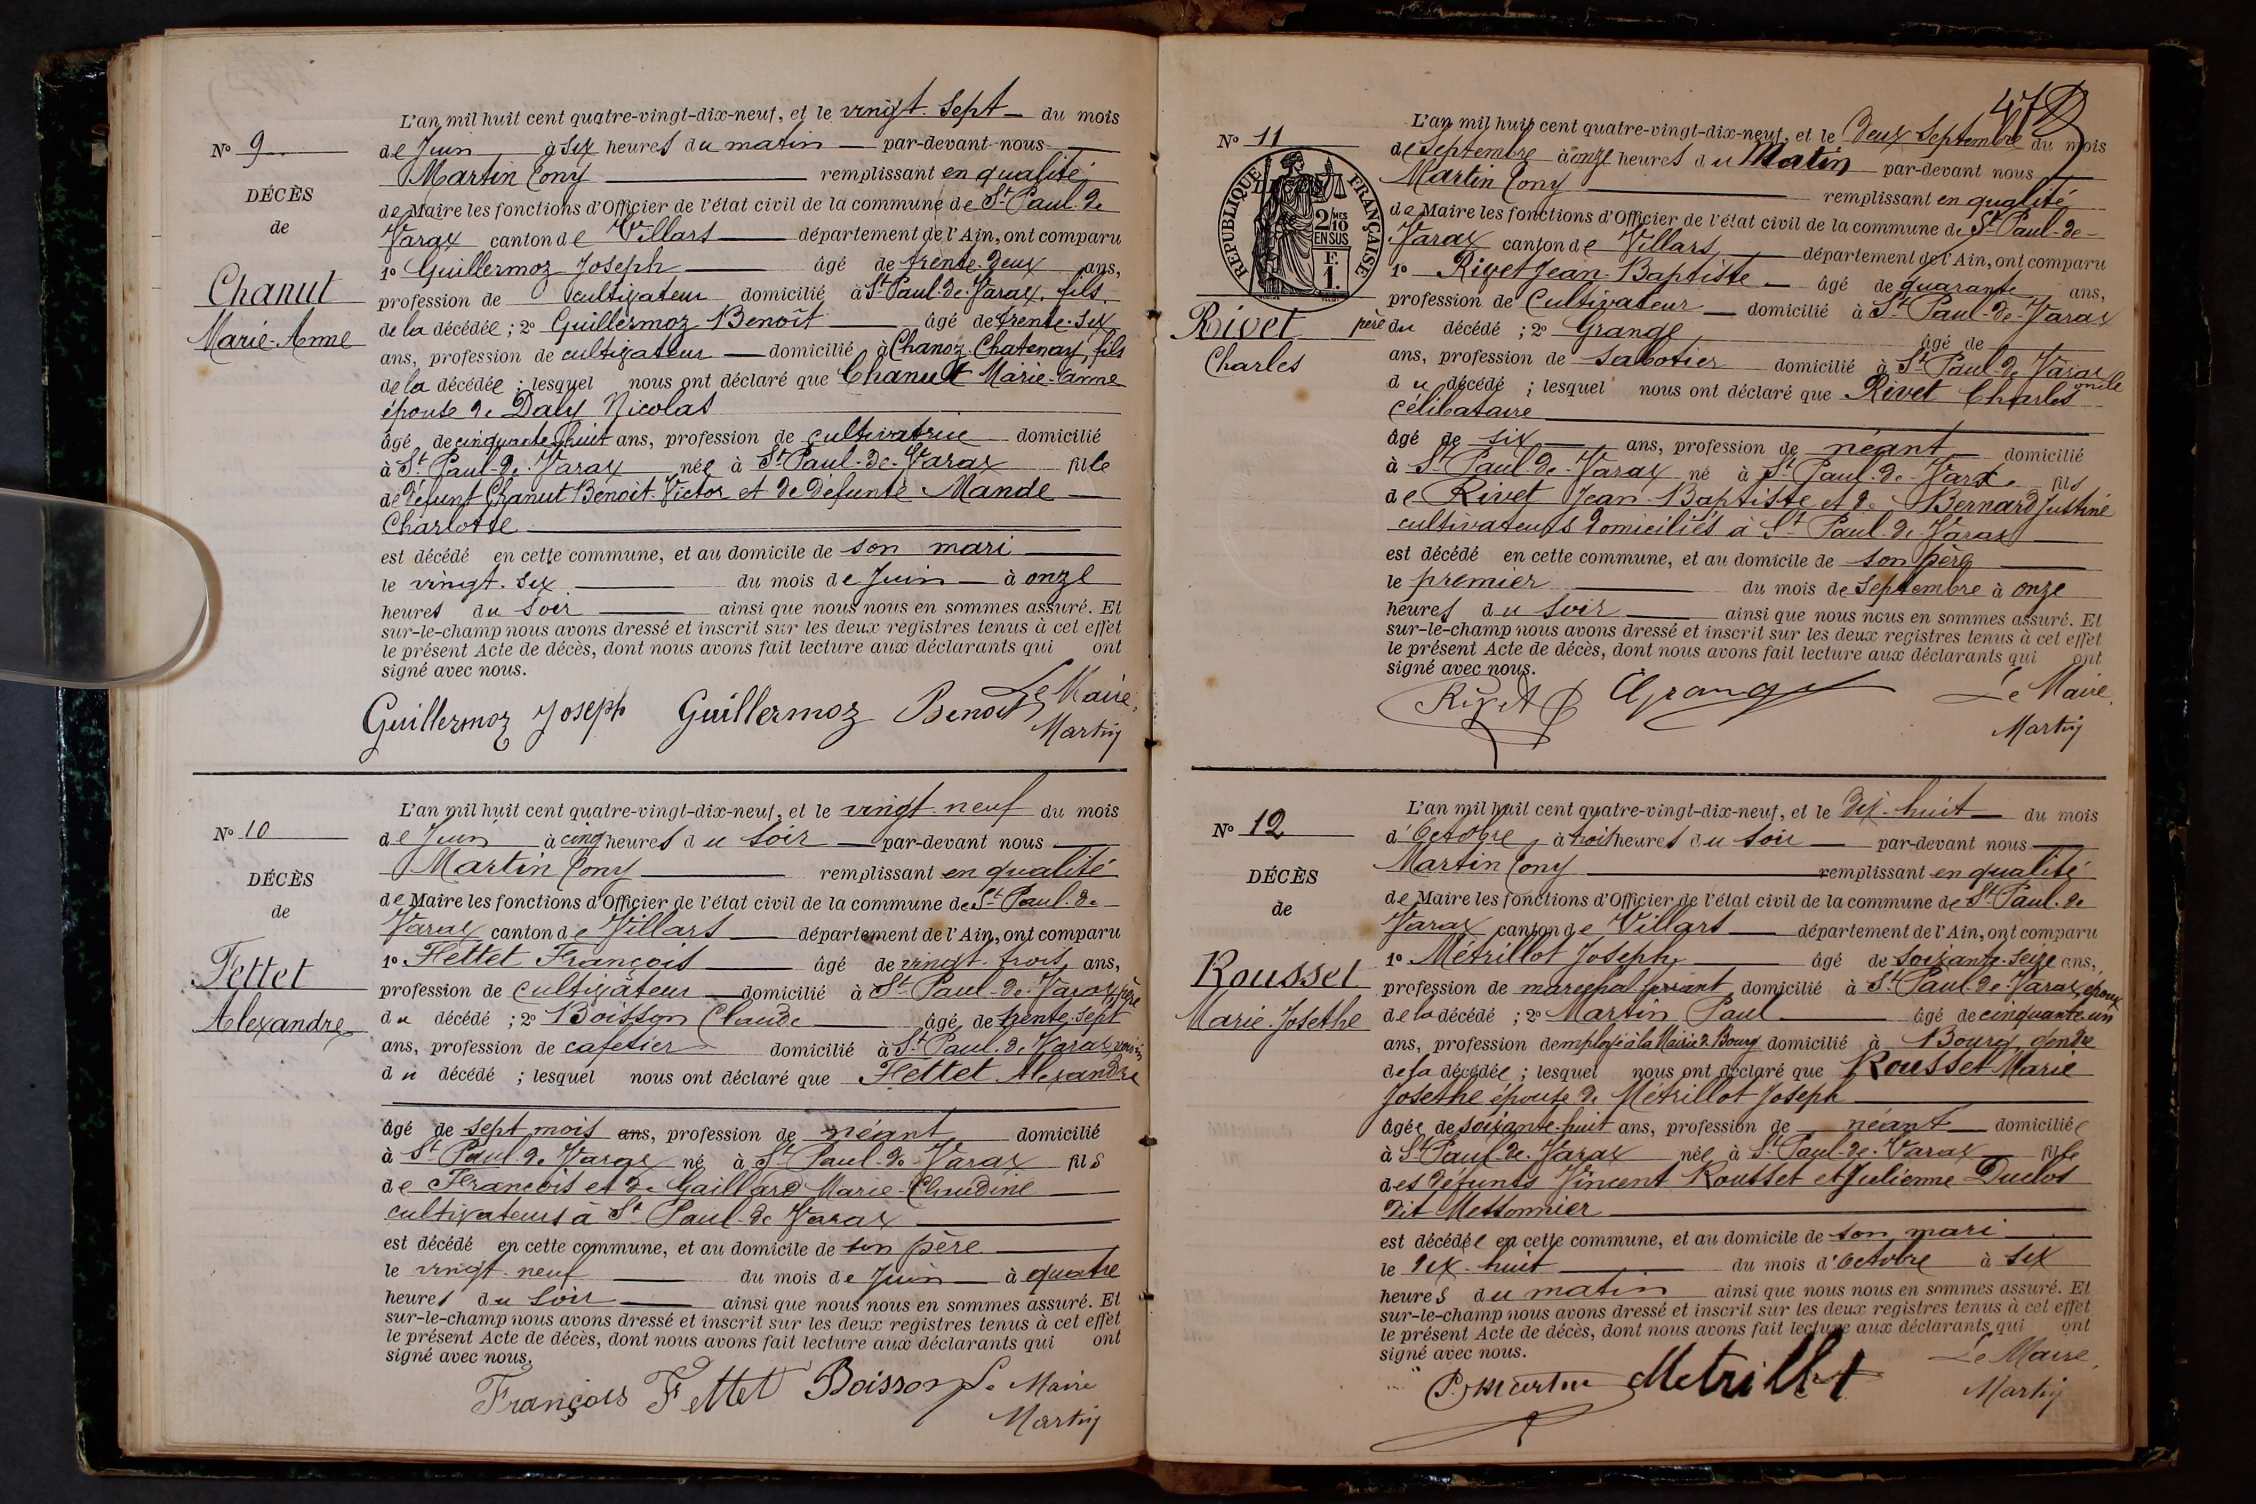 L'an mil huit cent quatre-vingt-dix-neuf, et le vingt-sept du mois
No 9
de Juin à six heures du matin par-devant-nous
Martin Cony remplissant en qualité
DÉCÈS
de Maire les fonctions d'Officier de l'état civil de la commune de St Paul-de
de
Varax canton de Villars département de l'Ain, ont comparu
1o Guillermoz Joseph âgé de trente-deux ans,
Chanut
profession de cultivateur domicilié à St Paul-de-Varax, fils
Marie-Anne
de la décédée ; 2o Guillermoz Benoît âgé de trente-six
ans, profession de cultivateur domicilié à Chanoz-Chatenay, fils
de la décédée ; lesquel nous ont déclaré que Chanut Marie-Anne
épouse de Daly Nicolas
âgé de cinquante huit ans, profession de cultivatrice domicilié
à St Paul-de-Varax née à St Paul-de-Varax fille
de défunt Chanut Benoit-Victor et de défunte Mande
Charlotte
est décédé en cette commune, et au domicile de son mari
le vingt-six du mois de Juin à onze
heures du soir ainsi que nous nous en sommes assuré. Et
sur-le-champ nous avons dressé et inscrit sur les deux registres tenus à cet effet
le présent Acte de décès, dont nous avons fait lecture aux déclarants qui ont
signé avec nous.
Guillermoz Joseph Guillermoz Benoit Le Maire,
Martin
L'an mil huit cent quatre-vingt-dix-neuf, et le vingt-neuf du mois
No 10
de Juin à cinq heures du soir par-devant nous
Martin Cony remplissant en qualité
DÉCÈS
de Maire les fonctions d'Officier de l'état civil de la commune de St Paul-de
de
Varax canton de Villars département de l'Ain, ont comparu
1o Fettet François âgé de vingt-trois ans,
Fettet
profession de cultivateur domicilié à St Paul-de-Varax, père
Alexandre
du décédé ; 2o Boisson Claude âgé de trente-sept
ans, profession de cafetier domicilié à St Paul-de Varax, voisin
du décédé ; lesquel nous ont déclaré que Fettet Alexandre
âgé de sept mois ans, profession de néant domicilié
à St Paul-de Varax né à St Paul-de-Varax fils
de François et de Gaillard Marie-Claudine
cultivateurs à St Paul-de Varax
est décédé en cette commune, et au domicile de son père
le vingt-neuf du mois de Juin à quatre
heures du soir ainsi que nous nous en sommes assuré. Et
sur-le-champ nous avons dressé et inscrit sur les deux registres tenus à cet effet
le présent Acte de décès, dont nous avons fait lecture aux déclarants qui ont
signé avec nous.
François Fettet Boisson Le Maire
Martin
47
L'an mil huit cent quatre-vingt-dix-neuf, et le deux Septembre du mois
No 11
de Septembre à onze heures du Matin par-devant nous
RÉPUBLIQUE FRANÇAISE
2 MES
10
EN SUS
F.
1.
Martin Cony remplissant en qualité
de Maire les fonctions d'Officier de l'état civil de la commune de St Paul-de-
Varax canton de Villars département de l'Ain, ont comparu
1o Rivet Jean-Baptiste âgé de quarante ans,
profession de Cultivateur domicilié à St Paul-de-Varax
Rivet
père du décédé ; 2o Grange âgé de
Charles
ans, profession de sabotier domicilié à St Paul-de Varax oncle
du décédé ; lesquel nous ont déclaré que Rivet Charles
célibataire
âgé de six ans, profession de néant domicilié
à St Paul-de-Varax né à St Paul-de-Varax fils
de Rivet Jean-Baptiste et de Bernard Justine
cultivateurs domiciliés à St Paul-de Varax
est décédé en cette commune, et au domicile de son père
le premier du mois de Septembre à onze
heures du soir ainsi que nous nous en sommes assuré. Et
sur-le-champ nous avons dressé et inscrit sur les deux registres tenus à cet effet
le présent Acte de décès, dont nous avons fait lecture aux déclarants qui ont
signé avec nous.
Rivet Grange Le Maire,
Martin
L'an mil huit cent quatre-vingt-dix-neuf, et le dix-huit du mois
No 12
d'Octobre à trois heures du soir par-devant nous
Martin Cony remplissant en qualité
DÉCÈS
de Maire les fonctions d'Officier de l'état civil de la commune de St Paul-de
de
Varax canton de Villars département de l'Ain, ont comparu
1o Métrillot Joseph âgé de soixante-seize ans,
Rousset
profession de maréchal ferrant domicilié à St Paul-de-Varax, époux
Marie-Josethe
de la décédé ; 2o Martin Paul âgé de cinquante un
ans, profession d'employé à la Mairie de Bourg domicilié à Bourg, gendre
de la décédée ; lesquel nous ont déclaré que Rousset Marie
Josethe épouse de Métrillot Joseph
âgée de soixante-huit ans, profession de néant domiciliée
à St Paul-de-Varax née à St Paul-de-Varax fille
des défunts Vincent Rousset et Julienne Duclos
dit Messonnier
est décédée en cette commune, et au domicile de son mari
le dix-huit du mois d'Octobre à six
heures du matin ainsi que nous nous en sommes assuré. Et
sur-le-champ nous avons dressé et inscrit sur les deux registres tenus à cet effet
le présent Acte de décès, dont nous avons fait lecture aux déclarants qui ont
signé avec nous.
P. Martin Metrillot Le Maire,
Martin